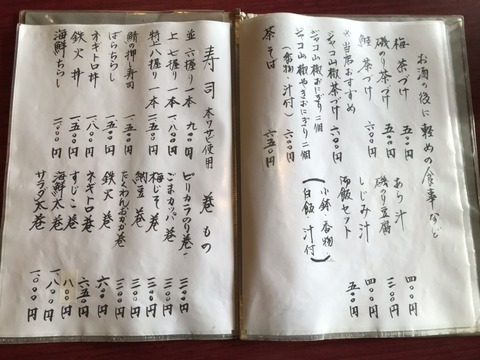 お酒の後に軽めの食事など
梅茶づけ 五〇〇円
磯のり茶づけ 五〇〇円
鮭茶づけ 六〇〇円
※当店おすすめ
ジャコ山椒茶づけ 六〇〇円
ジャコ山椒おにぎり二個
ジャコ山椒やきおにぎり二個
(香物・汁付) 六〇〇円
茶そば 六五〇円
あら汁 四〇〇円
磯のり豆腐 三〇〇円
しじみ汁 四〇〇円
御飯セット 五〇〇円
(小鉢・香物
白飯・汁付)
寿司 本ワサビ使用
並 六握り一本 九〇〇円
上 七握り一本 一、八〇〇円
特上 八握り一本 二、五〇〇円
鯖の押し寿司 一、五〇〇円
ばらちらし 一、五〇〇円
ネギトロ丼 一、八〇〇円
鉄火丼 二、〇〇〇円
海鮮ちらし 二、〇〇〇円
巻もの
ピリカラのり巻 三〇〇円
ごまカッパ巻 三〇〇円
梅じそ巻 三〇〇円
納豆巻 三〇〇円
たくわんおかか巻 三〇〇円
鉄火巻 六〇〇円
ネギトロ巻 六五〇円
すじこ巻 八〇〇円
海鮮太巻 一、八〇〇円
サラダ太巻 一、〇〇〇円